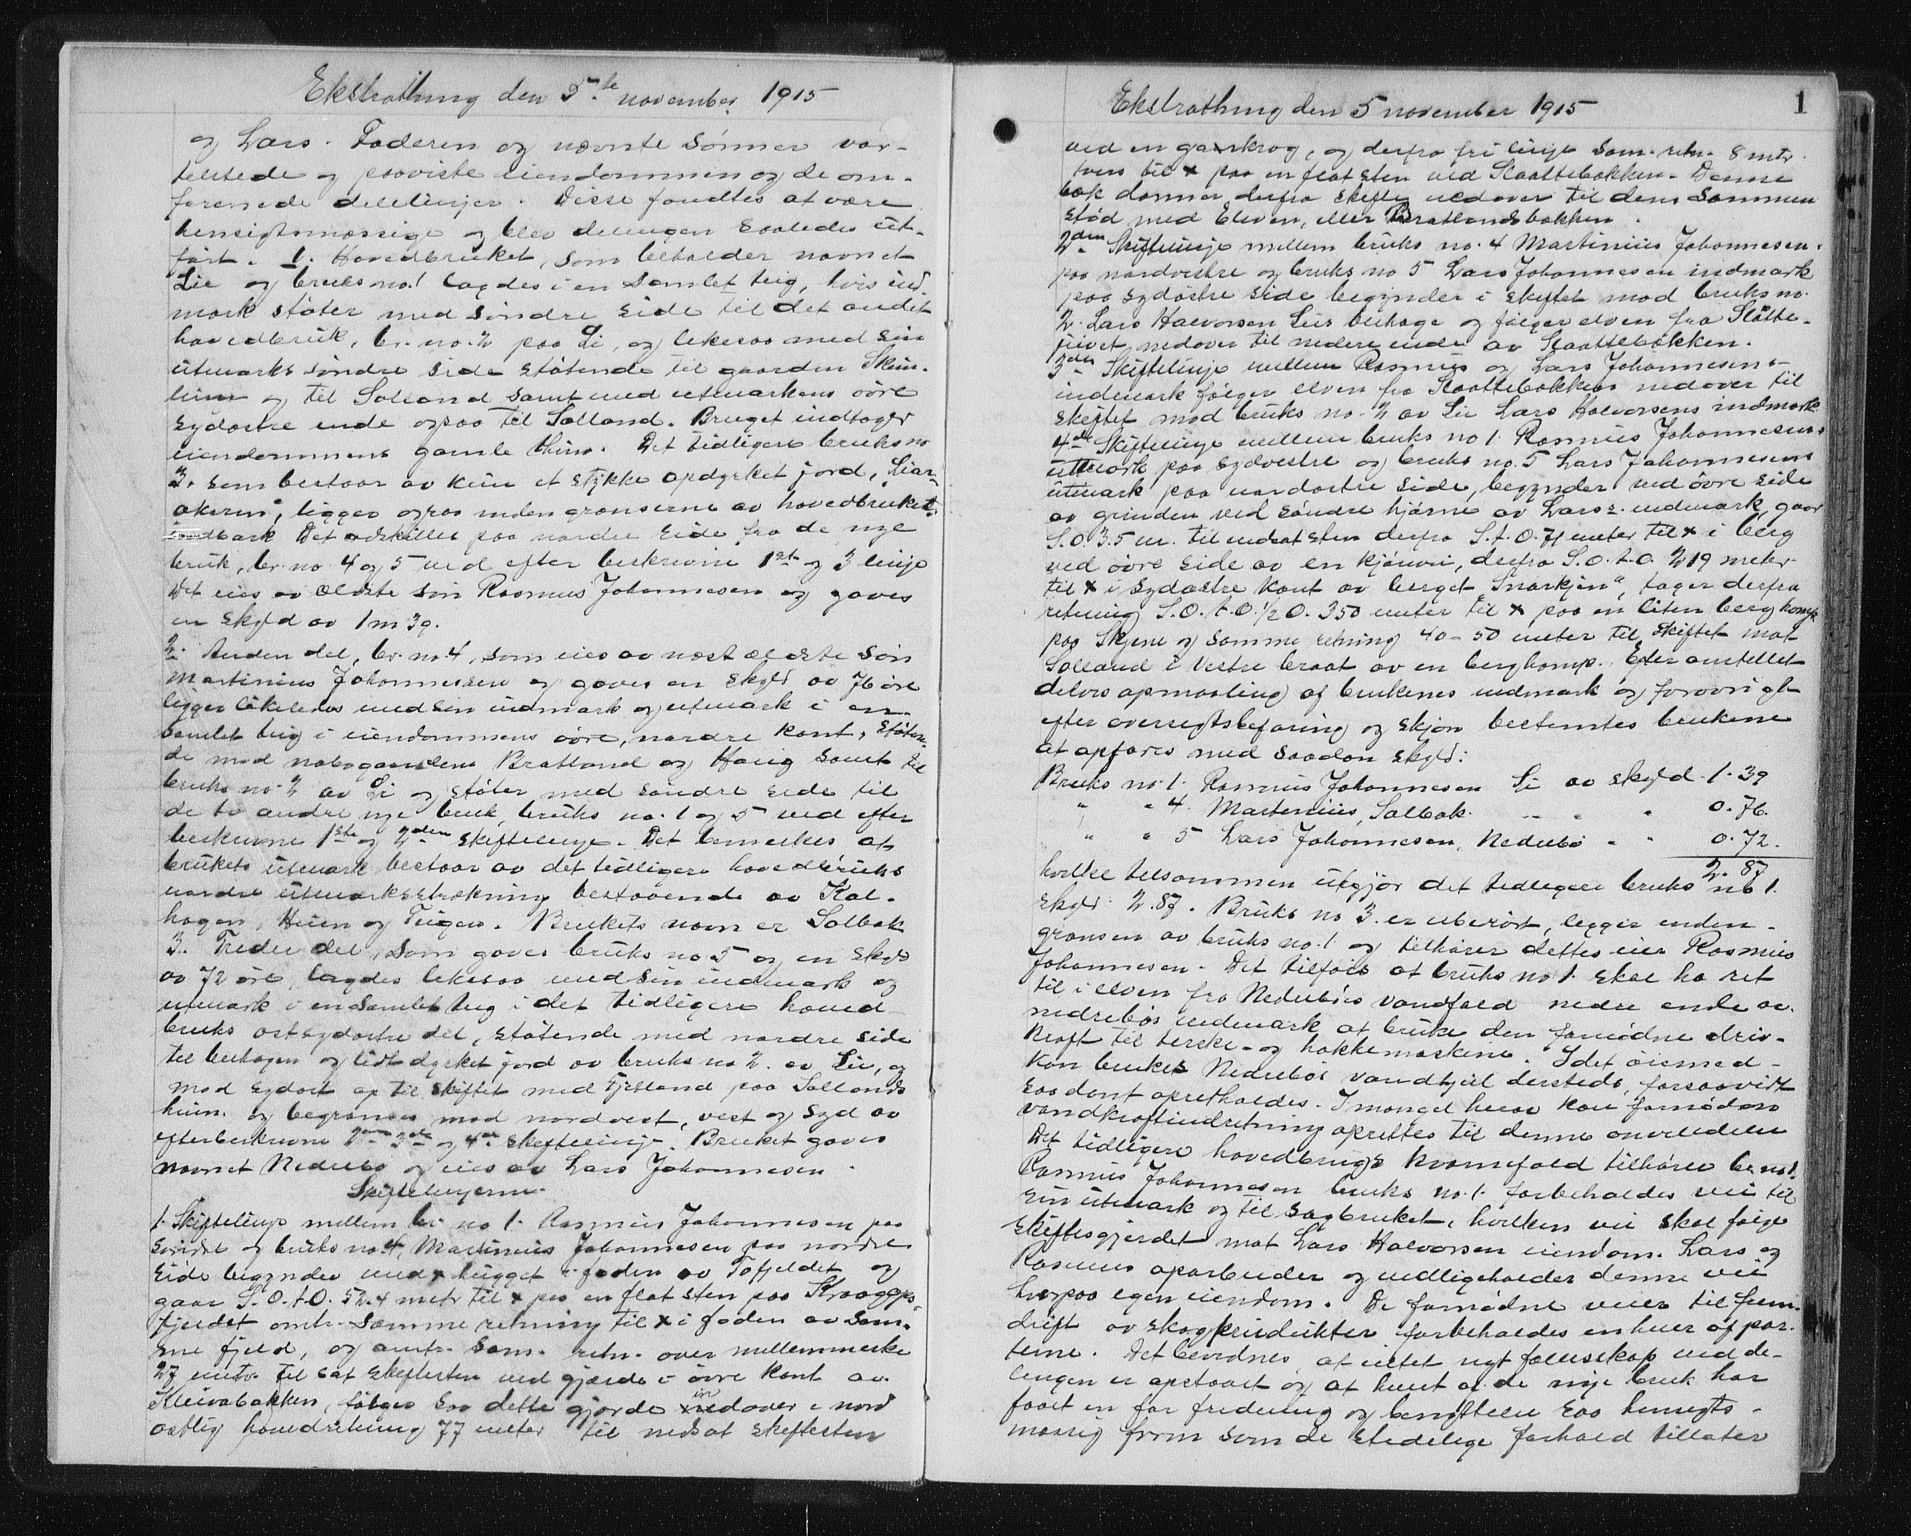 Ekstrathing den 5te november 1915
og Lars. Faderen og nævnte sönner var
tilstede og paaviste eiendommen og de om-
forenede delelinjer. Disse fandtes at være
hensigtsmæssige og blev delingen saaledes ut-
fört. 1. Hovedbruket, som beholder navnet
Lie og bruks no. 1 lagdes i en samlet teig, hvis ind
mark stöter med söndre side til det andet
hovedbruk, br. no. 2 paa Li, og likesaa med sin
utmarks söndre side stötende til gaarden
og til Solland samt med utmarkens övre
sydöstre ende ogsaa til Solland. Bruget indtager
eiendommens gamle thun. Det tidligere bruks no
3. som bestaar av kun et stykke opdyrket jord, "Liar-
akeren", ligger ogsaa inden grænserne av hovedbrukets
indmark Det adskilles paa nordre side fra de nye
bruk, br. no. 4 og 5 ved efter beskrevne 1st og 3 linje
Det eies av ældste sön Rasmus Johannesen og gaves
en skyld av 1 m 39.
2. Anden del, br. no. 4, som eies av næst ældste sön
Martinius Johannessen og gaves en skyld av 76 öre
ligger likeledes med sin indmark og utmark i en
samlet teig i eiendommens övre, nordre kant, stöten-
de mod nabogaardene Bratland og Haug samt til
bruks no. 2 av Li og stöter med söndre side til
de to andre nye bruk, bruks no. 1 og 5 ved efter
beskrevne 1ste og 2den skiftelinje. Det bemerkes at
brukets utmark bestaar av det tidligere hovedbruks
nordre utmarksstrækning bestaaende av Kal-
hagen, Heien og Teigen. Brukets navn er Solbak
3. Tredie del, som gaves bruks no 5 og en skyld
av 72 öre, lagdes likesaa med sin indmark og
utmark i en samlet teig i det tidligere hoved
bruks ostsydöstre del, stötende med nordre side
til beihagen og lidt dyrket jord av bruks no 2. av Lie, og
mod sydost op til skiftet med fjelland paa Sollands
heien og begrænses mod nordvest, vest og syd av
efterbeskrevne 2den 3die og 4de skiftelinje. Bruket gaves
navnet Nedrebö og eies av Lars Johannesen.
Skiftelinjerne.
1. Skiftelinje mellem br. no 1. Rasmus Johannesen paa
söndre og bruks no 4, Martinius Johannesen paa nordre
side begynder med x hugget i foden av Tofjeldet og
gaar S.O.t.O. 52.4 metr til x paa en flat sten paa Kraagges-
fjeldet omtr. samme retning til x i foden av sam-
me fjeld, og omtr. sam. retn. over mellemmerke
27 metr. til sat skiftesten ved gjærde i övre kant av
Kleivabakken, fölger saa dette gjærde nedover i nord
östlig hovedretning 77 meter til nedsat skiftesten
Ekstrathing den 5 november 1915
1
ved en gardkrog, og derfra fri linje sam. retn. 8 mtr.
tvers til x paa en flat sten ved Slaattebækken. Denne
bæk danner derfra skifte nedover til dens sammen
stöd med Elven, eller Bratlandsbækken.
2den Skiftelinje mellem bruks no. 4 Martinius Johannesen.
paa nordvestre og bruks no 5 Lars Johannesen indmark
paa sydöstre side begynder i skiftet mod bruks no.
2. Lars Halvorsen Lies beihage og fölger elven fra
nedover til nedre ende av Slaattebækken.
3die Skiftelinje mellem Rasmus og Lars Johannesens
indmark fölger elven fra Slaattebækken nedover til
skiftet mod bruks no. 2 av Lie Lars Halvorsens indmark
4de Skiftelinje mellem bruks no 1. Rasmus Johannesens
utmark paa sydvestre og bruks no. 5 Lars Johannesens
utmark paa nordöstre side, begynder ved övre side
av grinden ved söndre hjörne av Lars's indmark, gaar
S.O. 3.5 m. til nedsat sten derfra S.t.O. 71 meter til x i berg
ved övre side av en kjönn, derfra S.O.t.O. 219 meter
til x i sydöstre kant av berget "Snarkjen", tager derfra
retning S.O.t.O.½O. 350 meter til x paa en liten berghomp
paa Skjene og samme retning 40-50 meter til skiftet mot
Solland i vestre braat av en berghomp. Efter anstillet
delvis opmaaling af brukenes indmark og forövrigt
efter oversigtsbefaring og skjön bestemtes brukene
at opföres med saadan skyld:
Bruks no. 1. Rasmus Johannesen Li av skyld 1.39
" " 4. Martinius, Solbak. " " 0.76.
" " 5 Lars Johannesen, Nedrebö " " 0.72.
2.87
hvilke tilsammen utgjör det tidligere bruks no 1.
skyld: 2.87. Bruks no 3. er uberört, ligger inden-
grænsen av bruks no. 1 og tilhører dettes eier Rasmus
Johannesen. Det tilföies at bruks no. 1. skal ha ret
til i elven fra Nedrebös vandfald nedre ende av
nedrebös indmark at bruke den fornödne driv-
kraft til terske- og hakkemaskine. I det öiemed
kan brukes Nedrebös vandhjul dersteds, forsaavidt
saadant opretholdes. I mangel herav kan fornöden
vandkraftindretning oprettes til denne anvendelse
Det tidligere hovedbrugs kvernefald tilhörer br. no. 1.
Rasmus Johannesen bruks no. 1. forbeholdes vei til
sin utmark og til sagbruket, hvilken vei skal fölge
skiftesgjerdet mot Lars Halvorsen eiendom. Lars og
Rasmus oparbeider og vedligeholder denne vei
hver paa egen eiendom. De fornödne veier til frem-
drift av skogprodukter forbeholdes enhver af par-
terne. Det bevidnes, at intet nyt fællesskap ved de-
lingen er opstaaet og at hvert af de nye bruk har
faaet en for fredning og benyttelse saa hensigts-
mæssig form som de stedelige forhold tillater